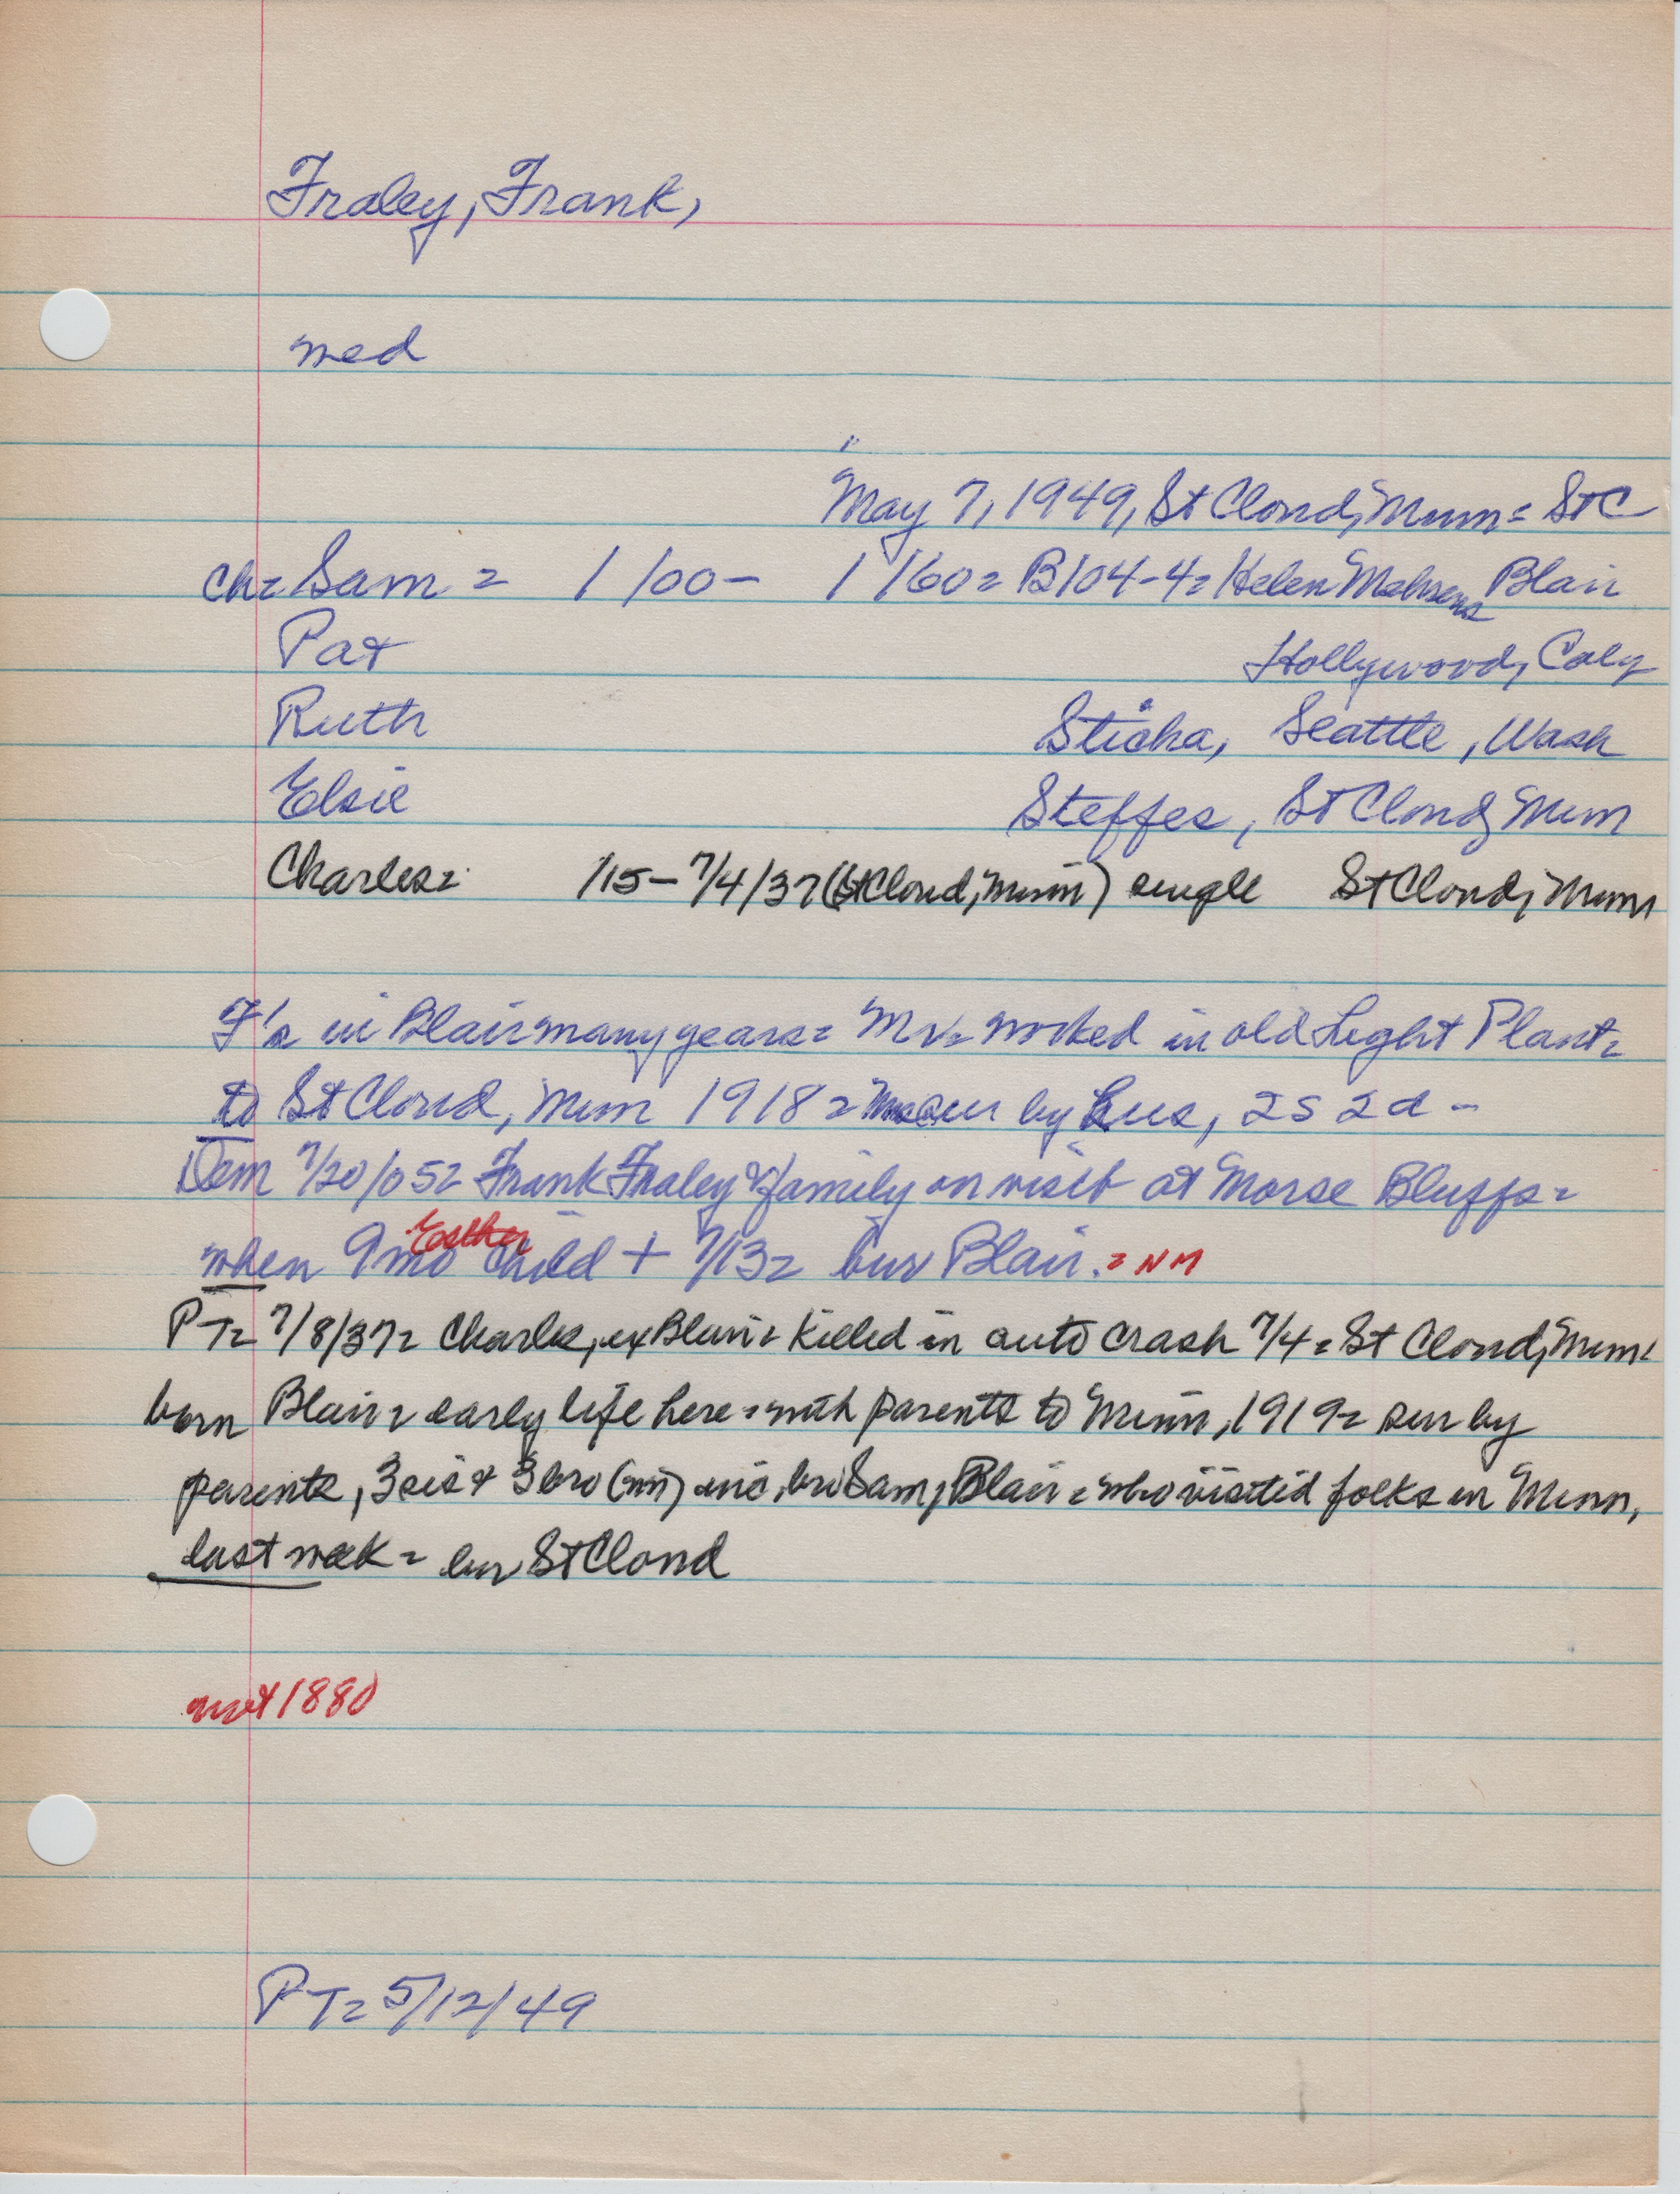 Fraley, Frank,
med
"
May 7, 1949, St Cloud, Minn = St C
ch = Sam = 1 100 - 1 160 = B104-4 = Helen Blair
Pat Hollywood, Calif
Ruth Sticha, Seattle, Wash
Elsie Steffes, St Cloud Minn
Charles = 115 - 7/4/37 (St Cloud, Minn) single St Cloud, Minn
F's in Blair many years = Mr = worked in old Light Plant =
to St Cloud, Minn 1918 = sur by hus, 2s 2d -
Dem 7/20/05 = Frank Fraley & family on visit at Morse Bluffs =
Esther
when 9 mo child + 7/13 = bur Blair. = NM
PT = 7/8/37 = Charles, ex Blair = killed in auto crash 7/4 = St Cloud, Minn =
born Blair = early life here = with parents to Minn, 1919 = sur by
parents, 3 sis & 3 bro (nn) inc. bro Sam, Blair = who visited folks in Minn,
last week = bur St Cloud
not 1880
PT = 5/12/49